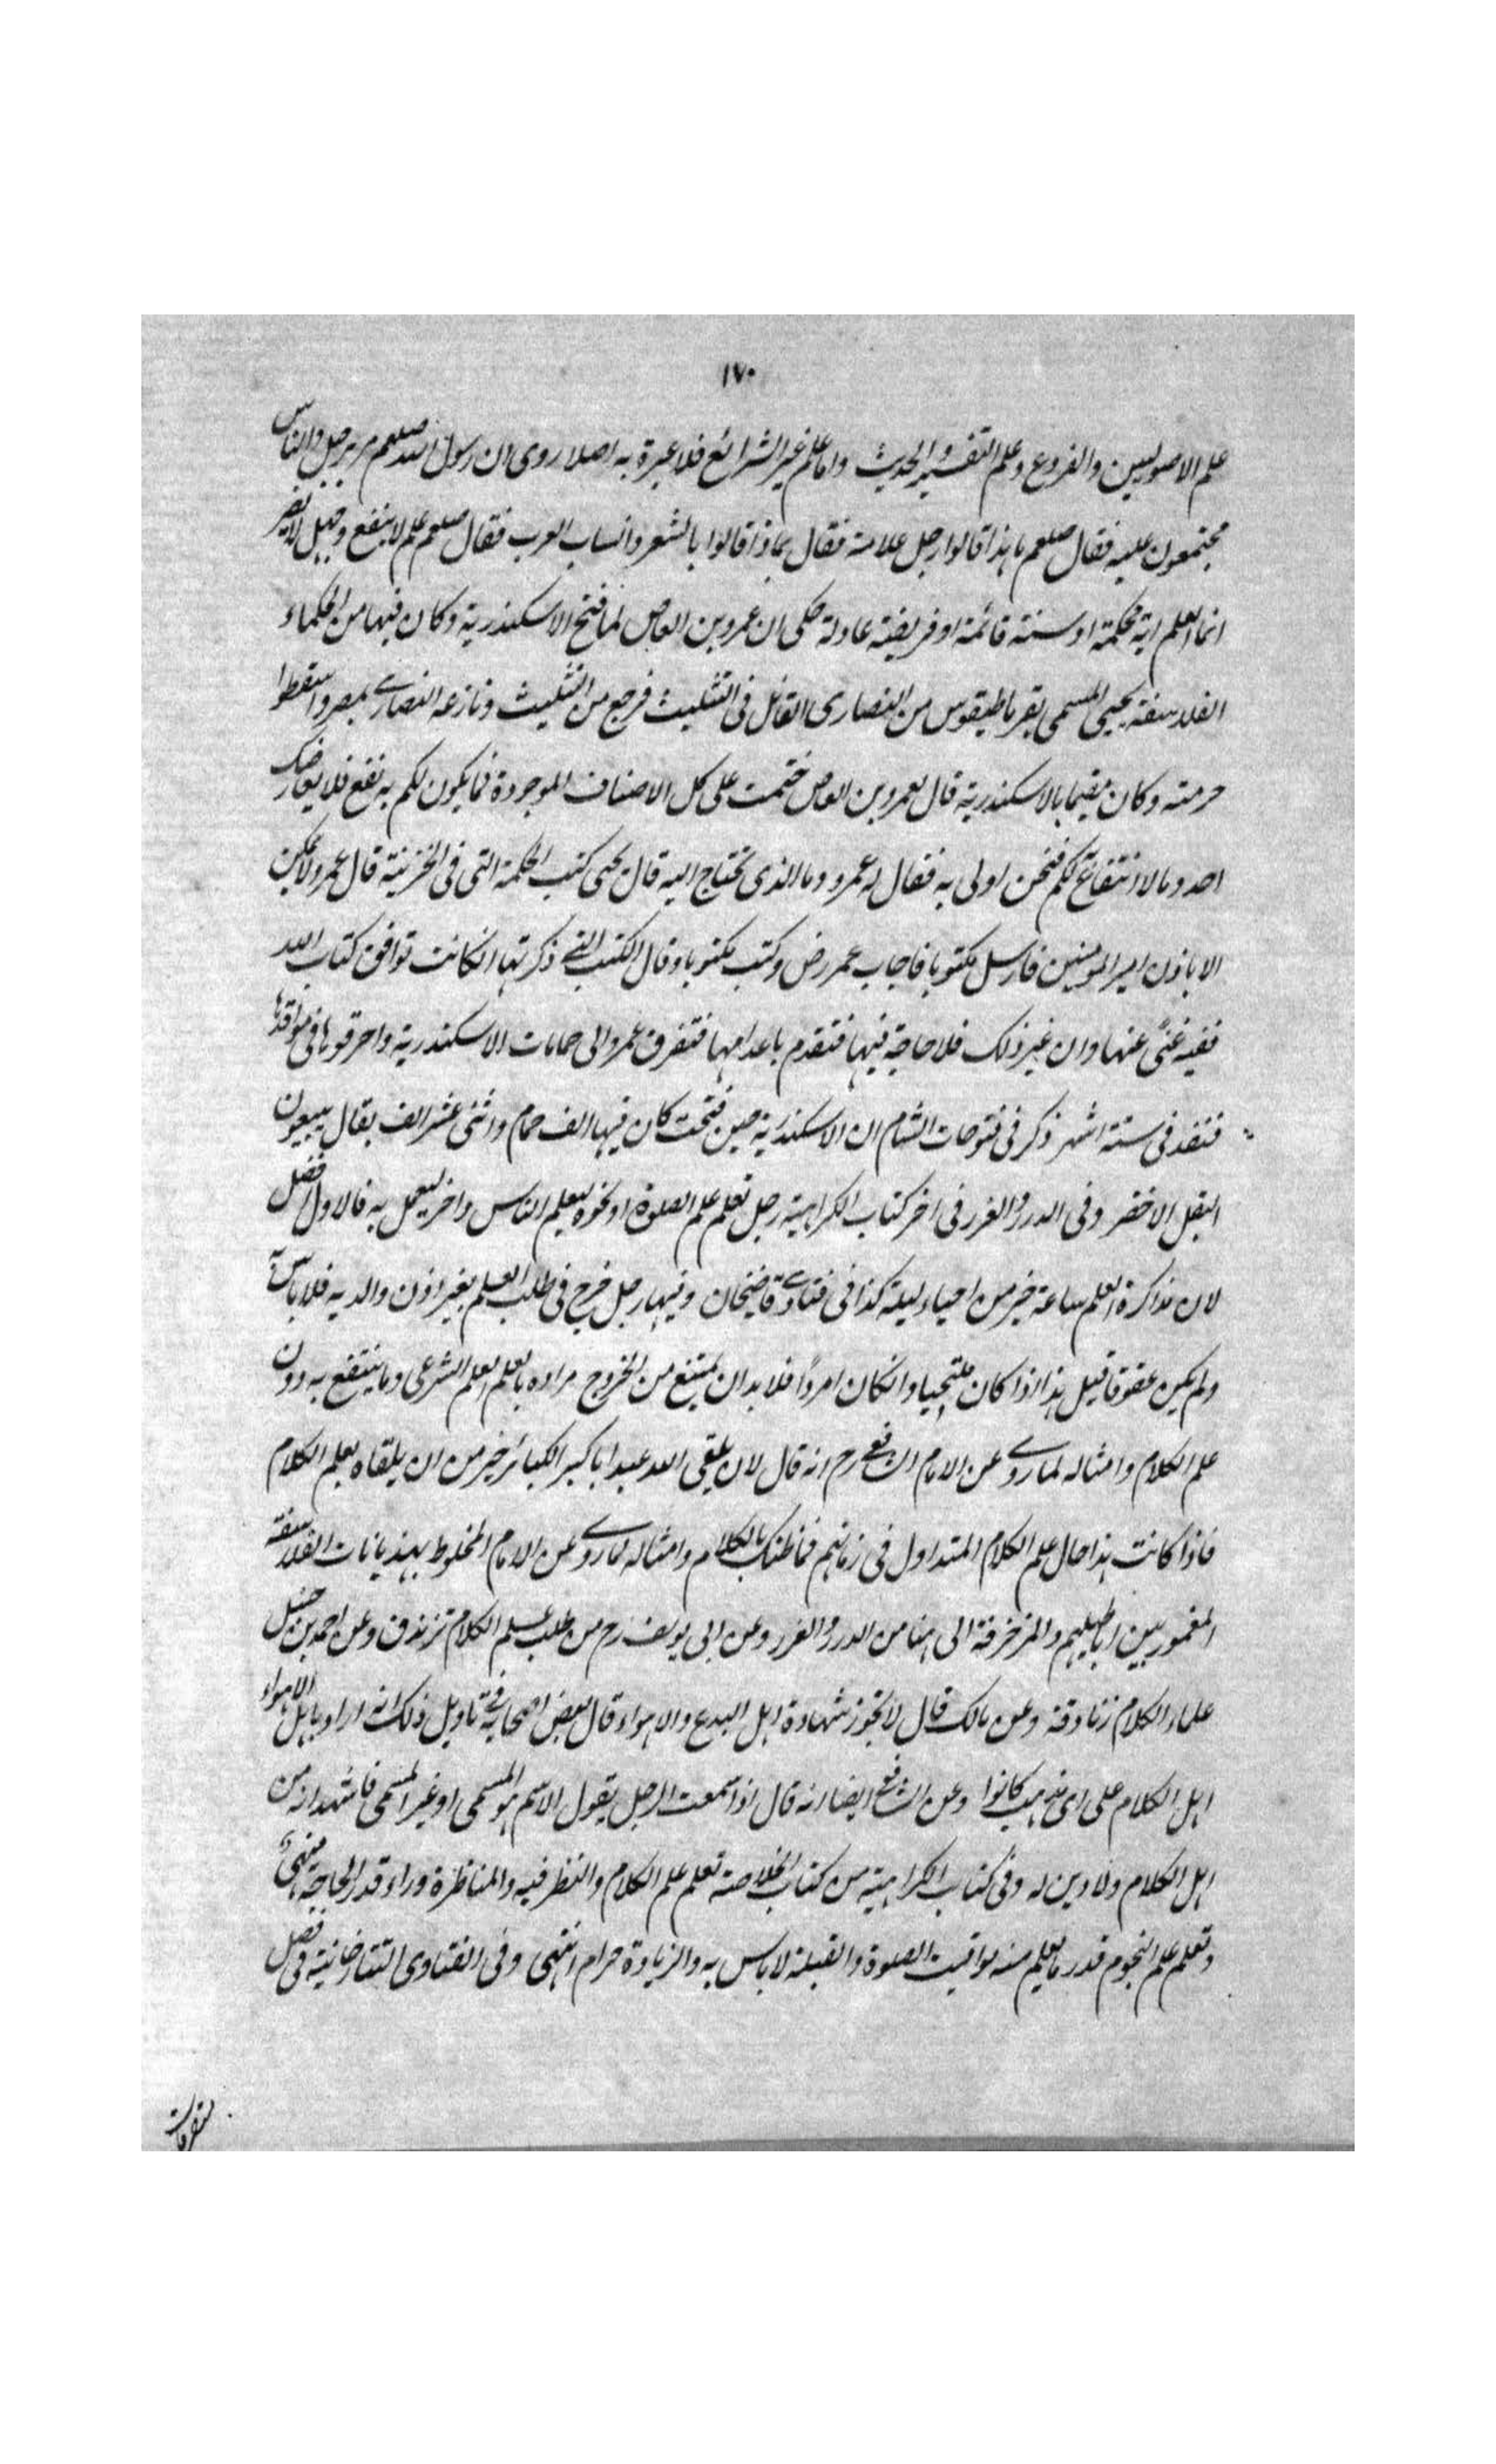 ١٧٠
علم الاصوليين والفروع وعلم التفسير والحديث واما علم غير الشرائع فلا عبرة به اصلا روى ان رسول الله صلعم مر برجل والناس
مجتمعون عليه فقال صلعم ما هذا قالوا رجل علامة فقال بماذا قالوا بالشعر وانساب العرب فقال صلعم علم لا ينفع وجهل لا يضر
انما العلم اية محكمة او سنة قائمة او فريضة عادلة حكى ان عمرو بن العاص لما فتح الاسكندرية وكان فيها من الحكماء
الفلاسفة يحيى المسمى بقرماطيقوس من النصارى القائل فى التثليث فرجع من التثليث ونازعه النصارى بمصر واسقطوا
حرمته وكان مقيما بالاسكندرية قال لعمرو بن العاص ختمت على كل الاصناف الموجودة فما يكون لكم به نفع فلا يعارضك
احد وما لا انتفاع لكم فنحن اولى به فقال له عمرو وما الذى تحتاج اليه قال يحيى كتب الحكمة التى فى الخزينة قال عمرو لا يمكن
الا باذن امير المومنين فارسل مكتوبا فاجاب عمر رض وكتب مكتوبا وقال الكتب التى ذكرتها انكانت توافق كتاب الله
ففيه غنىً عنها وان غير ذلك فلا حاجة فيها فتقدم باعدامها فتفرق عمرو الى حمامات الاسكندرية واحرقوها فى مواقدها
فنفد فى ستة اشهر ذكر فى فتوحات الشام ان الاسكندرية حين فتحت كان فيها الف حمام واثنى عشر الف بقال يبيعون
البقل الاخضر وفى الدرر والغرر فى اخر كتاب الكراهية رجل تعلم علم الصلوة او نحوه ليعلم الناس واخر ليعمل به فالاول افضل
لان مذاكرة العلم ساعة خير من احياء ليلة كذا فى فتاوى قاضيخان وفيها رجل خرج فى طلب العلم بغير اذن والديه فلا باس به
ولم يكن عقوقا قيل هذا اذا كان ملتحيا وانكان امردًا فلا بد ان يمتنع من الخروج مراده بالعلم العلم الشرعى وما ينتفع به دون
علم الكلام وامثاله لما روى عن الامام الشافعى رح انه قال لان يلقى الله عبدا باكبر الكبائر خير من ان يلقاه بعلم الكلام
فاذا كانت هذا حال علم الكلام المتداول فى زمانهم فما ظنك بالكلام وامثاله لما روى عن الامام المخلوط بهذيانات الفلاسفة
المغمور بين اباطيلهم والمزخرفة الى هنا من الدرر والغرر وعن ابى يوسف رح من طلب علم الكلام تزندق وعن احمد بن حنبل
علماء الكلام زنادقة وعن مالك قال لا تجوز شهادة اهل البدع والاهواء قال بعض اصحابه فى تاويل ذلك انه اراد باهل الاهواء
اهل الكلام على اى مذهب كانوا وعن الشافعى ايضا انه قال اذا سمعت الرجل يقول الاسم هو المسمى او غير المسمى فاشهد انه من
اهل الكلام ولا دين له وفى كتاب الكراهية من كتاب الخلاصة تعلم علم الكلام والنظر فيه والمناظرة وراء قدر الحاجة منهى
وتعلم علم النجوم قدر ما يعلم منه مواقيت الصلوة والقبلة لا باس به والزيادة حرام انتهى وفى الفتاوى التتارخانية فى فصل
المتفرقات